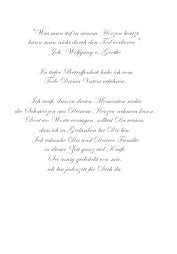 "Was man tief in seinem Herzen besitzt,
kann man nicht durch den Tod verlieren".
Joh. Wolfgang v. Goethe
In tiefer Betroffenheit habe ich vom
Tode Deines Vaters erfahren.
Ich weiß, dass in diesen Momenten nichts
die Schmerzen aus Deinem Herzen nehmen kann.
Dort wo Worte versagen, solltest Du wissen
dass ich in Gedanken bei Dir bin.
Ich wünsche Dir und Deiner Familie
in dieser Zeit ganz viel Kraft.
Sei innig gedrückt von mir,
ich bin jederzeit für Dich da.